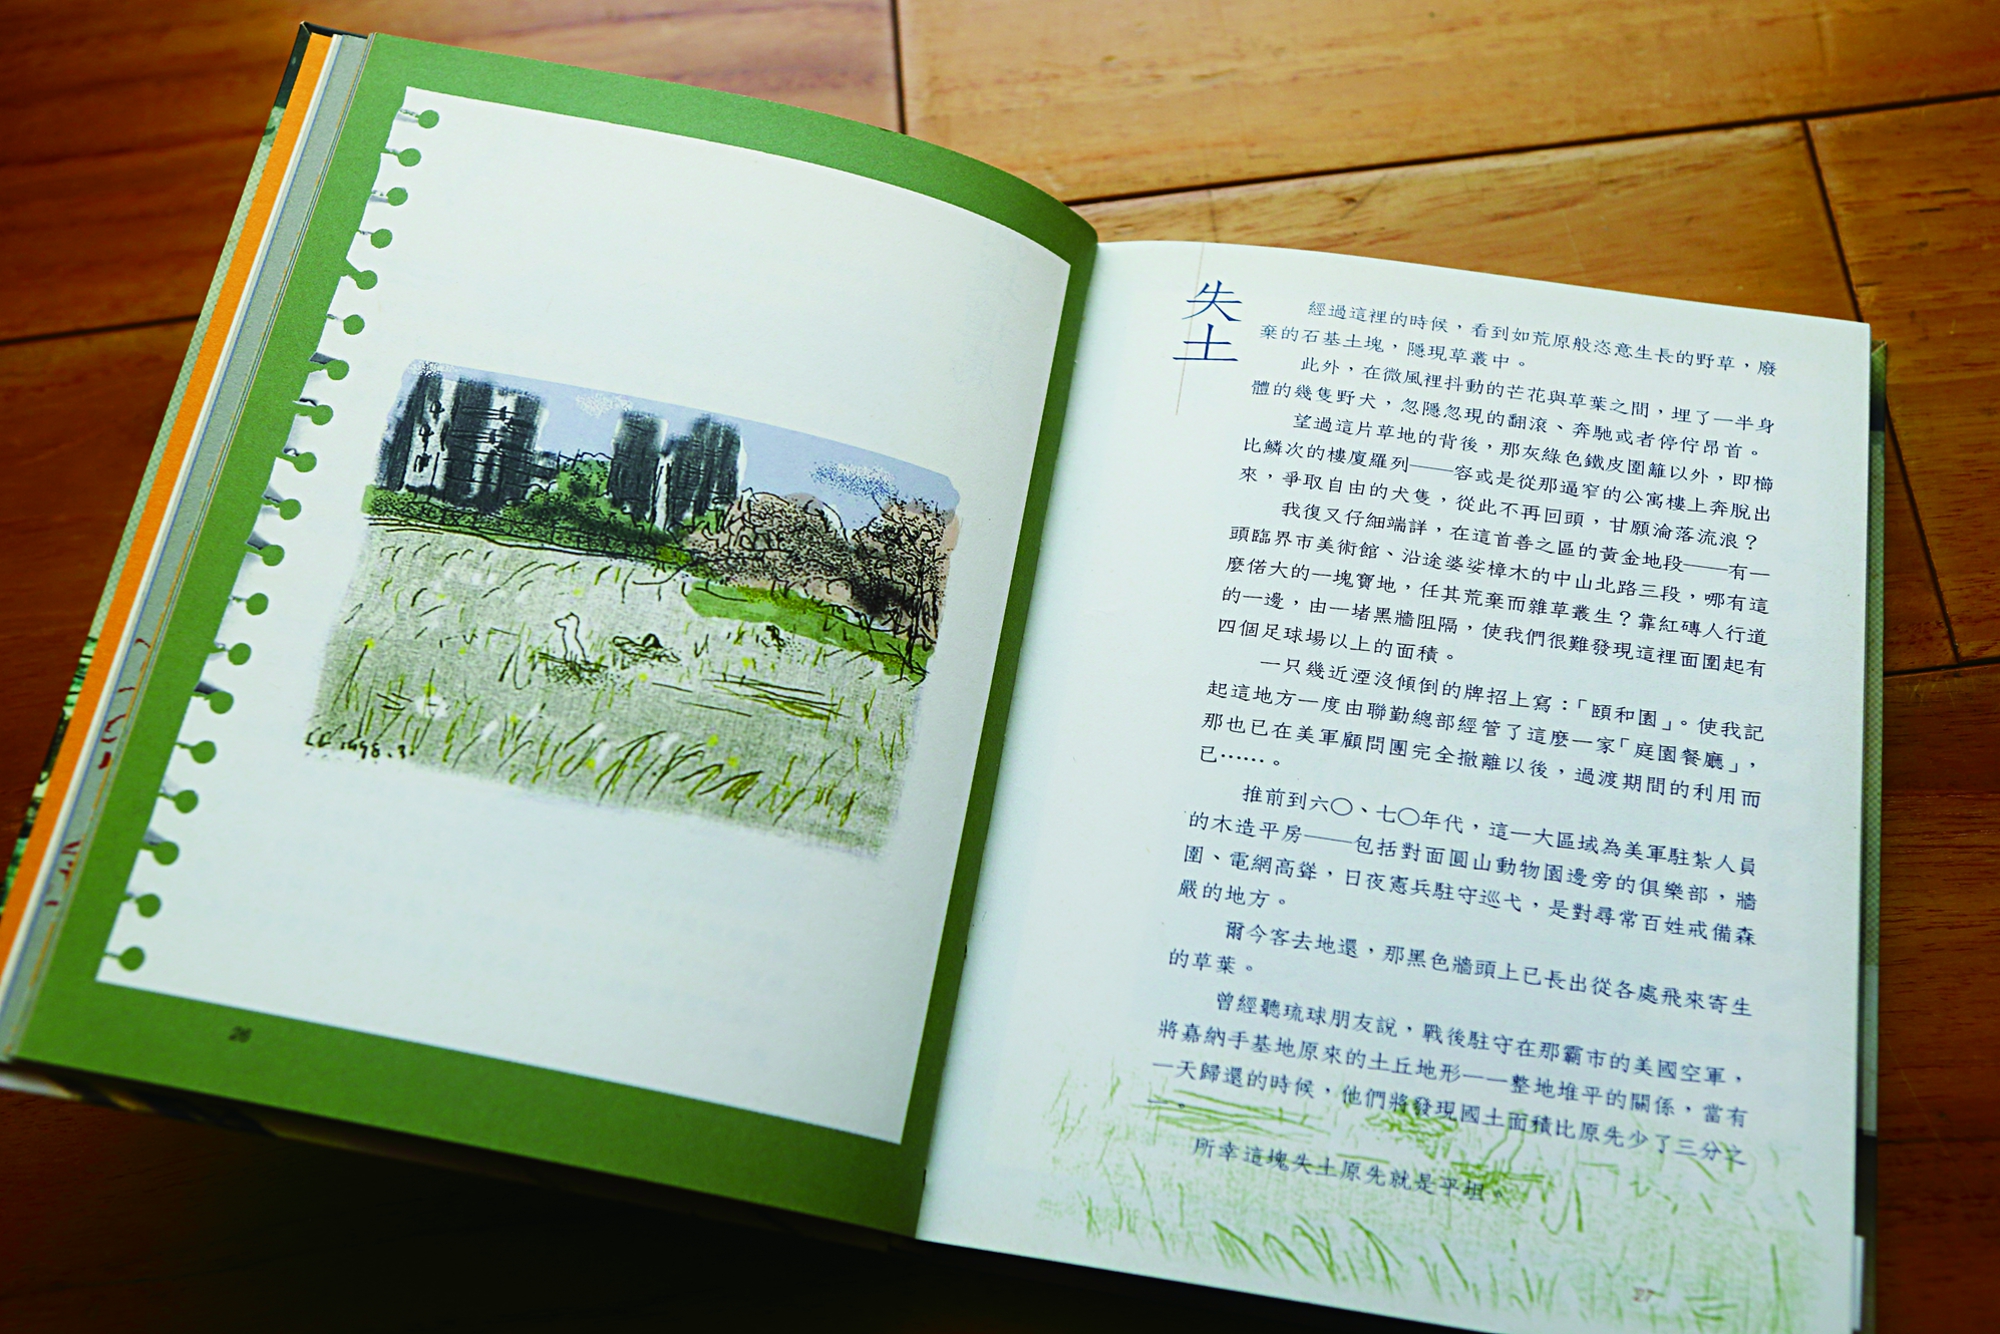 26
失土
經過這裡的時候，看到如荒原般恣意生長的野草，廢
棄的石基土塊，隱現草叢中。
此外，在微風裡抖動的芒花與草葉之間，埋了一半身
體的幾隻野犬，忽隱忽現的翻滾、奔馳或者停佇昂首。
望過這片草地的背後，那灰綠色鐵皮圍籬以外，即櫛
比鱗次的樓廈羅列——容或是從那逼窄的公寓樓上奔脫出
來，爭取自由的犬隻，從此不再回頭，甘願淪落流浪？
我復又仔細端詳，在這首善之區的黃金地段——有一
頭臨界市美術館、沿途婆娑樟木的中山北路三段，哪有這
麼偌大的一塊寶地，任其荒棄而雜草叢生？靠紅磚人行道
的一邊，由一堵黑牆阻隔，使我們很難發現這裡面圍起有
四個足球場以上的面積。
一只幾近湮沒傾倒的牌招上寫：「頤和園」。使我記
起這地方一度由聯勤總部經管了這麼一家「庭園餐廳」，
那也已在美軍顧問團完全撤離以後，過渡期間的利用而
已……。
推前到六〇、七〇年代，這一大區域為美軍駐紮人員
的木造平房——包括對面圓山動物園邊旁的俱樂部，牆
圍、電網高聳，日夜憲兵駐守巡弋，是對尋常百姓戒備森
嚴的地方。
爾今客去地還，那黑色牆頭上已長出從各處飛來寄生
的草葉。
曾經聽琉球朋友說，戰後駐守在那霸市的美國空軍，
將嘉納手基地原來的土丘地形——整地堆平的關係，當有
一天歸還的時候，他們將發現國土面積比原先少了三分之
一。
所幸這塊失土原先就是平坦。
27